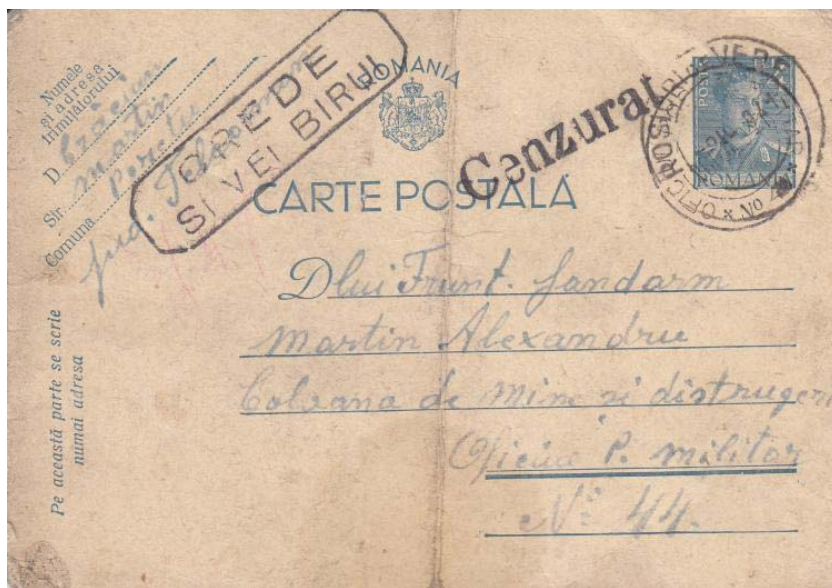 Numele
și adresa
trimițătorului
D. Crăciun
Martin
Str. Peretu
Comuna
jud. Teleorman
CREDE
SI VEI BIRUI
ROMANIA
Cenzurat
POSTA
ROMANIA
No
CARTE POSTALĂ
Dlui Frunt. Jandarm
Martin Alexandru
Coloana de mine si distrugeri
Oficiu P. militar
No 44.
Pe această parte se scrie
numai adresa